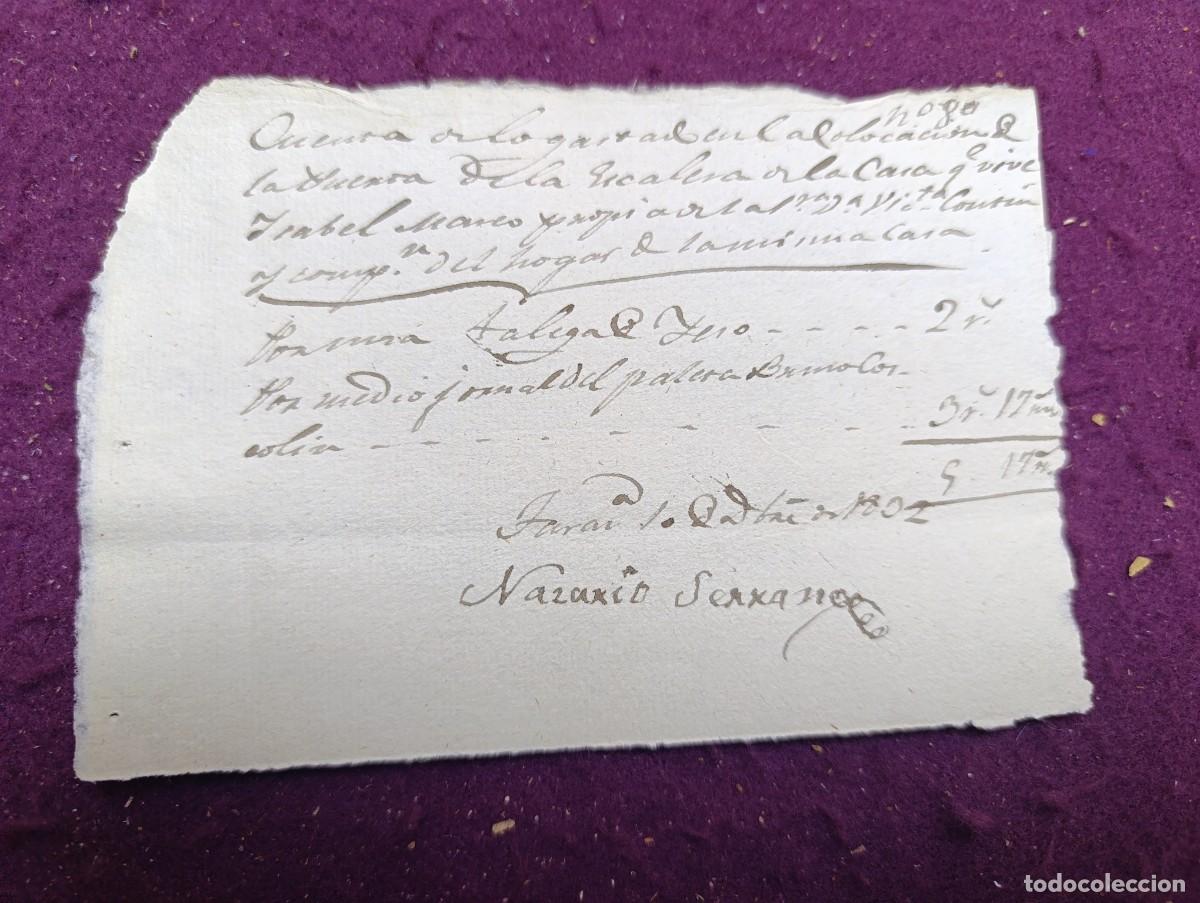 nº 80
Cuenta de lo gastad en la Colocacion de
la Puerta de la Escalera de la Casa q.e vive
Ysabel Marco propia de la S.ra D.a Vic.ta
y comp.n del hogar de la misma Casa
Por una talega de Yeso - - - - - 2 r.s
Por medio jornal del paleta
colin - - - - - - - - 3 r.s 17 ms
5 17 ms
10 de de 1832
Nazario Serrano
todocoleccion